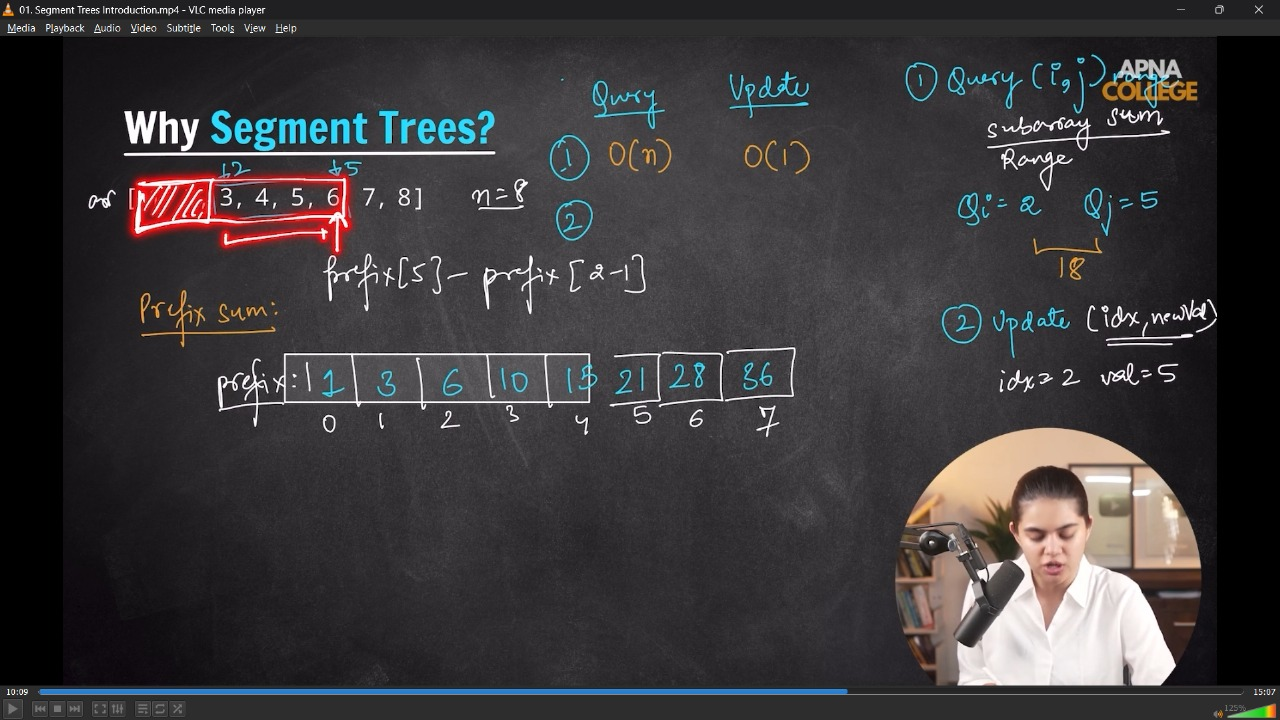 01. Segment Trees Introduction.mp4 - VLC media player
Media Playback Audio Video Subtitle Tools View Help
Why Segment Trees?
Query Update
① O(n) O(1)
②
↓2 ↓5
arr [ 3, 4, 5, 6, 7, 8] n=8
prefix[5] - prefix[2-1]
Prefix sum:
prefix: 1 3 6 10 15 21 28 36
0 1 2 3 4 5 6 7
① Query (i,j) range
APNA
COLLEGE
subarray sum
Range
Qi=2 Qj=5
18
② Update (idx, newVal)
idx=2 val=5
10:09 15:07
125%